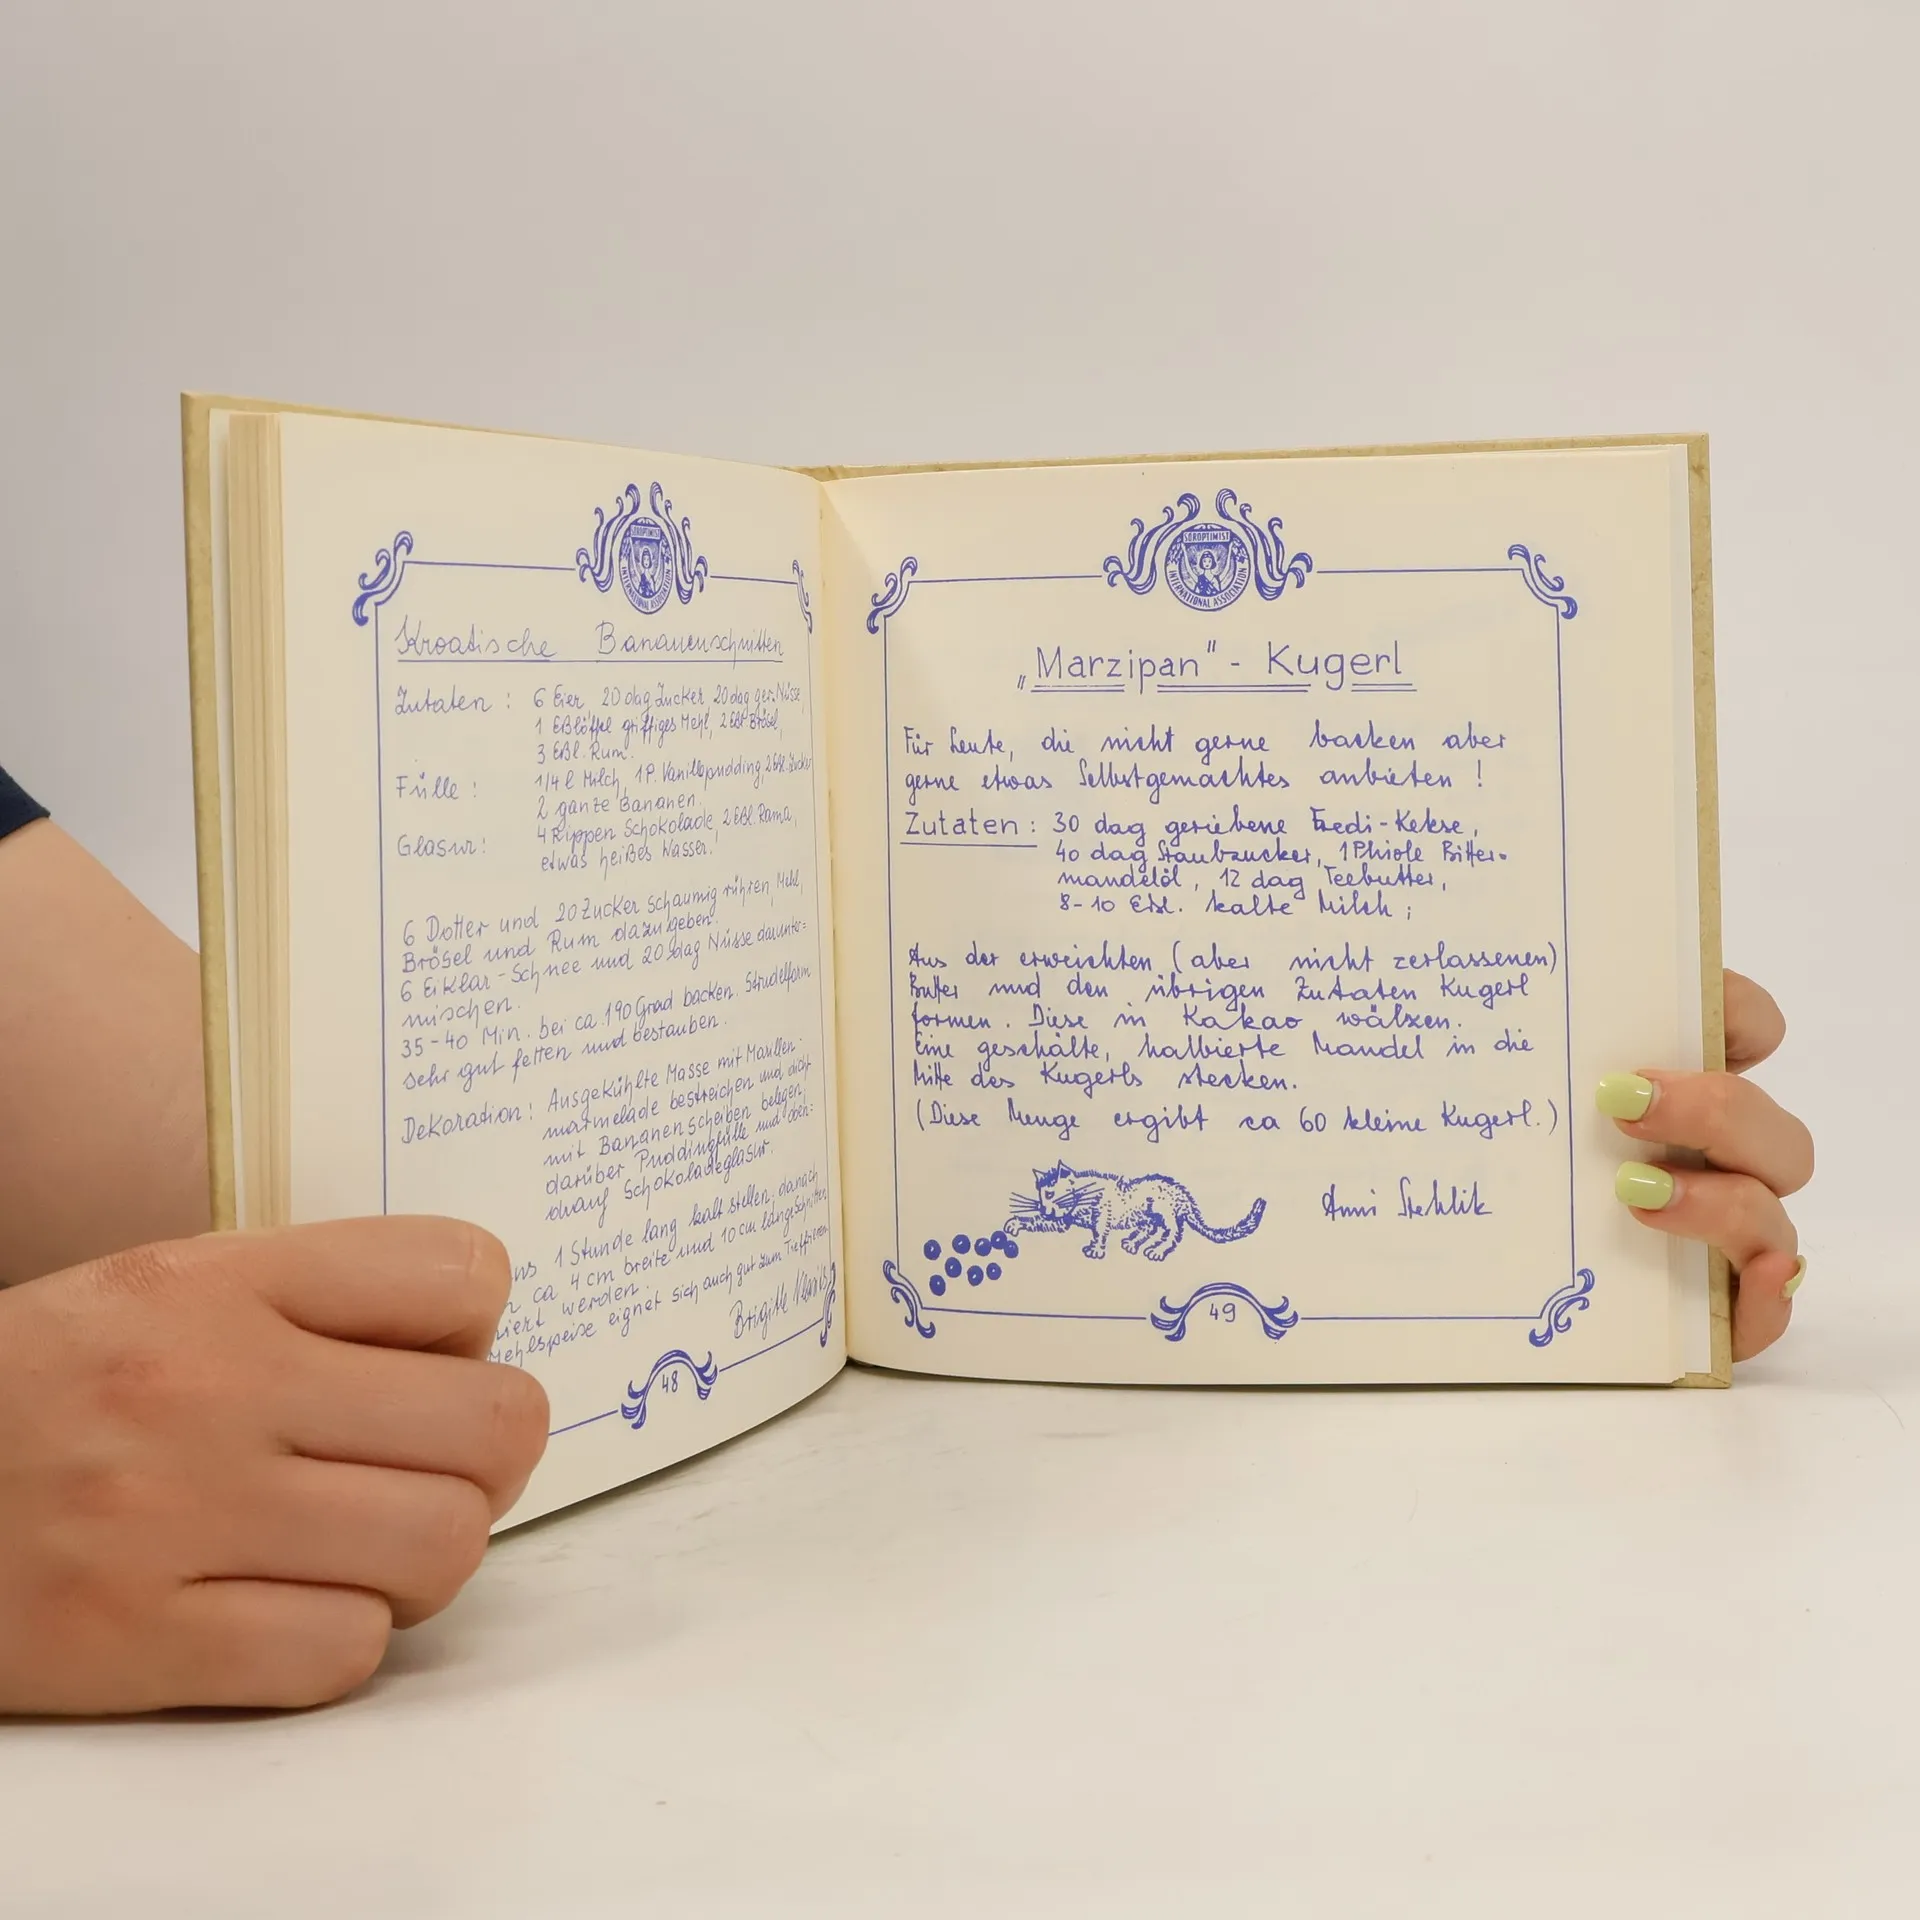 SOROPTIMIST
INTERNATIONAL ASSOCIATION
Kroatische Bananenschnitten
Zutaten : 6 Eier 20 dag Zucker, 20 dag ger. Nüsse,
1 Eßlöffel griffiges Mehl, 2 Eßl. Brösel,
3 Eßl. Rum.
Fülle : 1/4 l Milch, 1 P. Vanillepudding, 2 Eßl. Zucker
2 ganze Bananen.
Glasur : 4 Rippen Schokolade, 2 Eßl. Rama,
etwas heißes Wasser.
6 Dotter und 20 Zucker schaumig rühren, Mehl,
Brösel und Rum dazugeben.
6 Eiklar-Schnee und 20 dag Nüsse darunter=
mischen.
35-40 Min. bei ca. 190 Grad backen. Strudelform
sehr gut fetten und bestauben.
Dekoration : Ausgekühlte Masse mit Marillen-
marmelade bestreichen und dicht
mit Bananenscheiben belegen,
darüber Puddingfülle und oben=
drauf Schokoladeglasur.
1 Stunde lang kalt stellen, danach
ca 4 cm breite und 10 cm lange Schnitten
werden.
Mehlspeise eignet sich auch gut zum Tieffrieren
Brigitte
48
SOROPTIMIST
INTERNATIONAL ASSOCIATION
„Marzipan" - Kugerl
Für Leute, die nicht gerne backen aber
gerne etwas Selbstgemachtes anbieten !
Zutaten : 30 dag geriebene Fredi-Kekse,
40 dag Staubzucker, 1 Phiole Bitter-
mandelöl, 12 dag Teebutter,
8-10 Eßl. kalte Milch ;
Aus der erweichten (aber nicht zerlassenen)
Butter und den übrigen Zutaten Kugerl
formen. Diese in Kakao wälzen.
Eine geschälte, halbierte Mandel in die
Mitte des Kugerls stecken.
(Diese Menge ergibt ca 60 kleine Kugerl.)
Anni Stehlik
49